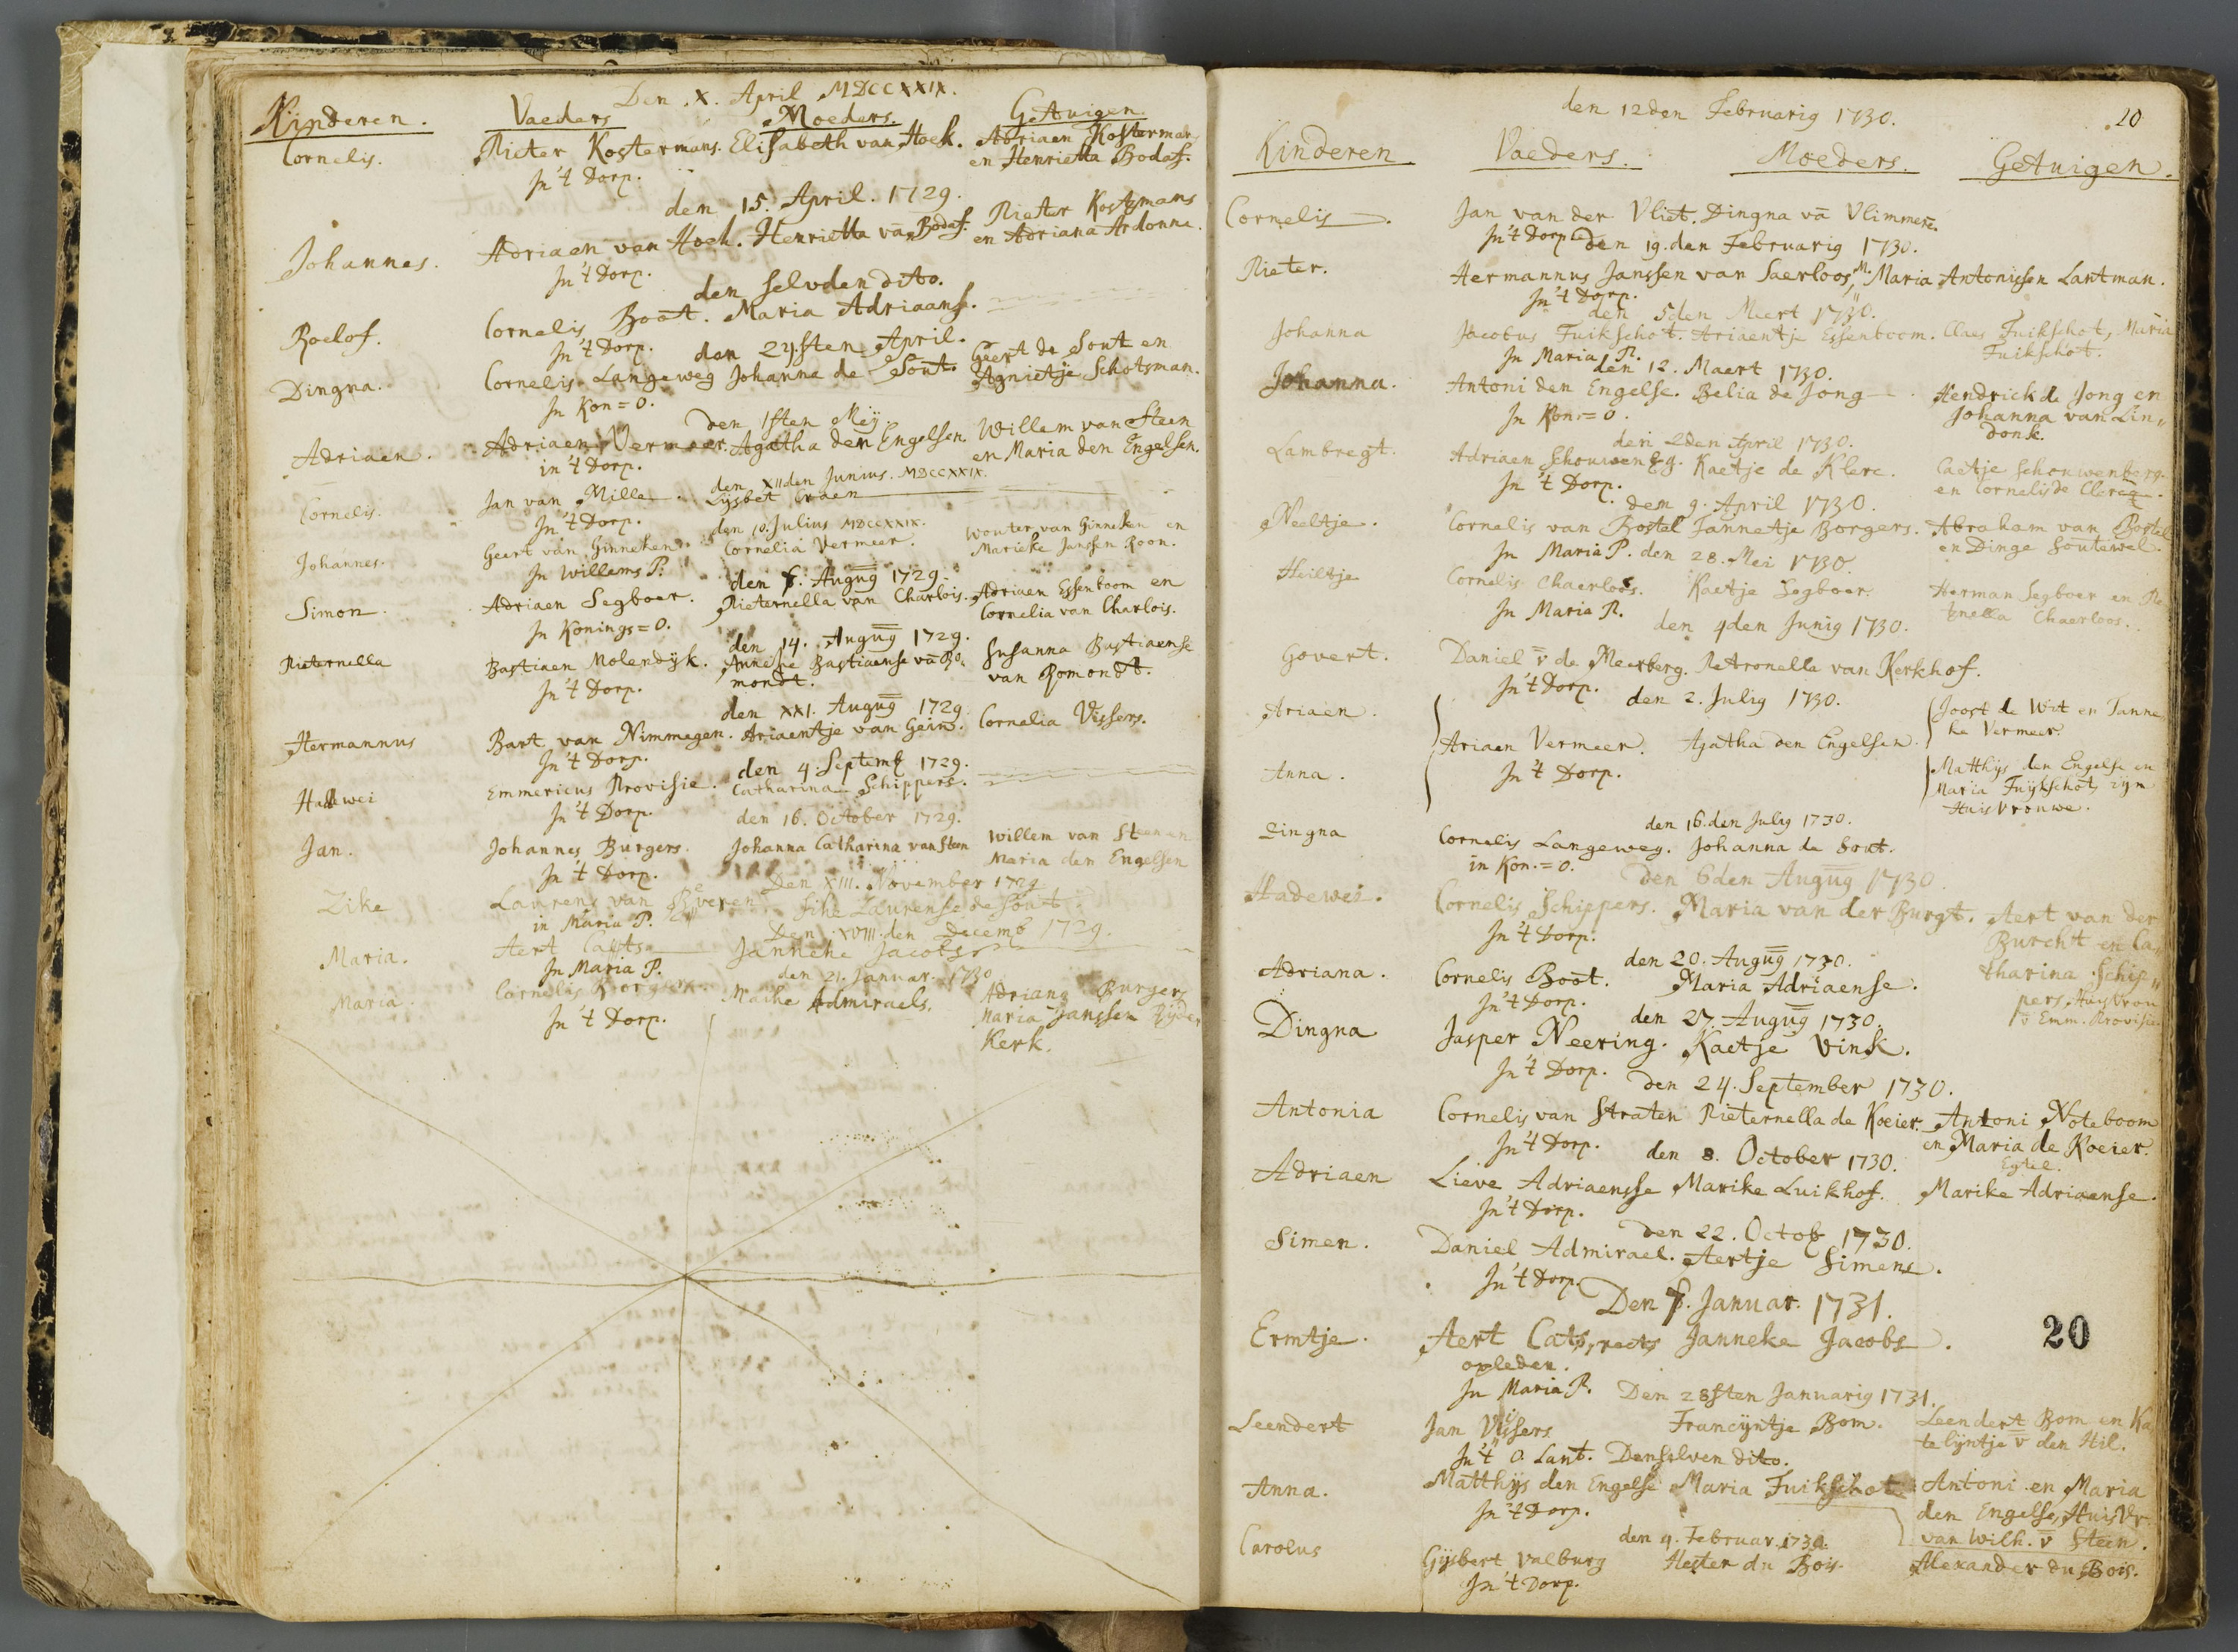 Den X. April MDCCXXIX.
Kinderen. Vaeders Moeders. Getuigen
Cornelis. Pieter Kostermans. Elisabeth van Hoek. Adriaen Kosterman
en Henrietta Bodaf.
In't Dorp.
den 15 April. 1729.
Johannes. Adriaen van Hoek. Henrietta vā Bodaf. Pieter Kostermans
en Adriana Ardonne.
In't Dorp.
den selvden dito.
Roelof. Cornelis Boot. Maria Adriaanse.
In't Dorp.
den 24sten April.
Dingna. Cornelis Langeweg Johanna de Sout Geert de Sout en
Agnietje Schotsman.
In Kon=O.
den 1sten Meij
Adriaen. Adriaen Vermeer. Agatha den Engelsen. Willem van Steen
en Maria den Engelsen.
in't Dorp.
den XIIden Junius. MDCCXXIX.
Cornelis. Jan van Mille. Lijsbet Craen
In't Dorp.
den 10. Julius MDCCXXIX.
Johannes. Geert van Ginneken. Cornelia Vermeer. Wouter van Ginneken en
Marieke Janssen Roon.
In Willems P.
den 7. Augug 1729
Simon. Adriaen Segboer. Pieternella van Charlois. Adriaen Essenboom en
Cornelia van Charlois.
In Konings=O.
den 14. Augug 1729.
Pieternella Bastiaen Molendijk. Anneke Bastiaense vā Ro. Susanna Bastiaense
mondt. van Romondt.
In't Dorp.
den XXI. Augug 1729
Hermannus Bart van Nimmegen. Ariaentje van Gein. Cornelia Vissers.
In't Dorp.
den 4. Septemb 1729.
Hadewei Emmericus Provisie. Catharina Schippers.
In't Dorp.
den 16. October 1729.
Jan. Johannes Burgers. Johanna Catharina van Steen Willem van Steen en
Maria den Engelsen
In't Dorp.
Den XIII. November 1729
Zike Laurens van Beveren Sike Laurense de Sout
in Maria P.
Den XVIII. den Decemb 1729.
Maria. Aert Cats Janneke Jacobs
In Maria P.
den 21. Januar. 1730
Maria. Cornelis Borgers. Maike Admiraels. Adriana Burgers
Maria Janssen Rijder
Kerk.
In't Dorp.
den 12den Februarij 1730.
20
Kinderen Vaeders. Moeders. Getuigen.
Cornelis. Jan van der Vliet. Dingna vā Vlimmerē.
In't Dorp den 19. den Februarij 1730.
Pieter. Hermannus Janssen van Saerloos, M. Maria Antonissen Lantman.
In't Dorp.
den 5den Maert 1730.
Johanna Jacobus Fuikschot. Ariaentje Essenboom. Claes Fuikschot, Maria
Fuikschot.
In Maria P.
den 12. Maert 1730.
Johanna. Antoni den Engelse. Belia de Jong Hendrick de Jong en
Johanna van Lin„
donk.
In Kon.=O.
den 2den April 1730.
Lambregt. Adriaen Schouwenbg. Kaetje de Klerc. Caetje Schouwenberg.
en Cornelis de Clercq.
In't Dorp.
den 9. April 1730.
Neeltje. Cornelis van Bostel Jannetje Borgers. Abraham van Bostel
en Dinge Soutewel.
In Maria P. den 28. Mei 1730
Heiltje Cornelis Chaerloos. Kaetje Segboer. Herman Segboer en Pe
tnella Chaerloos.
In Maria P.
den 4den Junij 1730.
Govert. Daniel v̄ de Meerberg. Petronella van Kerkhof.
In't Dorp.
den 2. Julij 1730.
Ariaen. Joost de Wit en Tanne
ke Vermeer.
Ariaen Vermeer. Agatha den Engelsen.
Anna. In't Dorp. Matthijs den Engelse en
Maria Fuijkschot, zijn
Huisvrouwe.
den 16. den Julij 1730.
Dingna Cornelis Langeweg. Johanna de Sout.
in Kon.=O.
Den 6den Augug 1730.
Hadewei. Cornelis Schippers. Maria van der Burgt. Aert van der
Burcht en Ca„
tharina Schip„
pers, Huisvrou
v̄ Emm. Provisie.
In't Dorp.
den 20. Augug 1730.
Adriana. Cornelis Boot. Maria Adriaense.
In't Dorp.
den 27. Augug 1730.
Dingna Jasper Neering. Kaetje Vink.
In't Dorp.
den 24. September 1730.
Antonia Cornelis van Straten Pieternella de Koeier. Antoni Noteboom
en Maria de Koeier.
In't Dorp.
den 8. October 1730.
Adriaen Lieve Adriaensse Marike Luikhof. Marike Adriaense.
In't Dorp.
den 22. Octob 1730.
Simen. Daniel Admirael. Aertje Simens.
In't Dorp.
Den 7. Januar. 1731.
Ermtje. Aert Cats, Janneke Jacobs.
20
In Maria P.
Den 28sten Januarij 1731.
Leendert Jan Vissers Francijntje Bom. Leendert Bom en Ka
telijntje v̄ den Hil.
In't O. Lant. Denselven dito.
Anna. Matthijs den Engelse Maria Fuikschot Antoni en Maria
den Engelse, HuisVr.
van Wilh. v̄ Steen.
In't Dorp.
den 4. Februar. 1731.
Carolus Gijsbert Valburg Hester du Bois. Alexander du Bois.
In't Dorp.